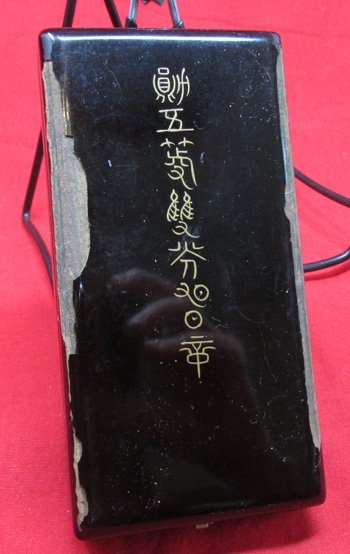 勛五等雙光旭日章